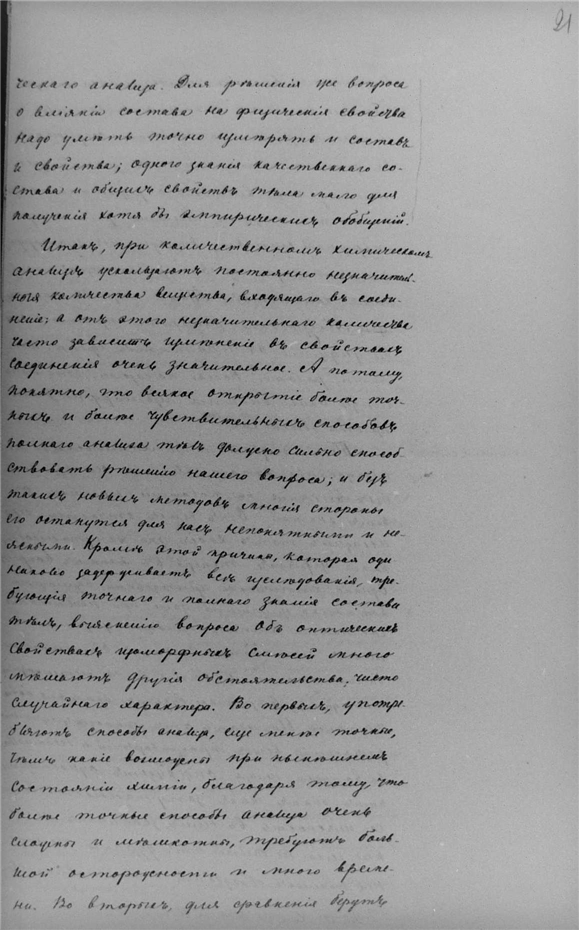 21
ческаго анализа. Для рѣшенія же вопроса
о вліяніи состава на физическія свойства
надо умѣть точно измѣрять и составъ
и свойства; одного знанія качественнаго со-
става и общихъ свойствъ тѣла мало для
полученія хотя бы эмпирическихъ обобщеній.
Итакъ, при количественномъ химическомъ
анализѣ ускользаютъ постоянно незначитель-
ныя количества вещества, входящаго въ соеди-
неніе; а отъ этого незначительнаго количества
часто зависитъ измѣненіе въ свойствахъ
соединенія очень значительное. А потому,
понятно, что всякое открытіе болѣе точ-
ныхъ и болѣе чувствительныхъ способовъ
полнаго анализа тѣлъ должно сильно способ-
ствовать рѣшенію нашего вопроса; и безъ
такихъ новыхъ методовъ многія стороны
его останутся для насъ непонятными и не-
ясными. Кромѣ этой причины, которая оди-
наково задерживаетъ всѣ изслѣдованія, тре-
бующія точнаго и полнаго знанія состава
тѣлъ, выясненію вопроса объ оптическихъ
свойствахъ изоморфныхъ смѣсей много
мѣшаютъ другія обстоятельства, чисто
случайнаго характера. Во первыхъ, употре-
бляютъ способы анализа, еще менѣе точные,
чѣмъ какіе возможны при нынѣшнемъ
состояніи химіи, благодаря тому, что
болѣе точные способы анализа очень
сложны и мѣшкотны, требуютъ боль-
шой осторожности и много време-
ни. Во вторыхъ, для сравненія берутъ